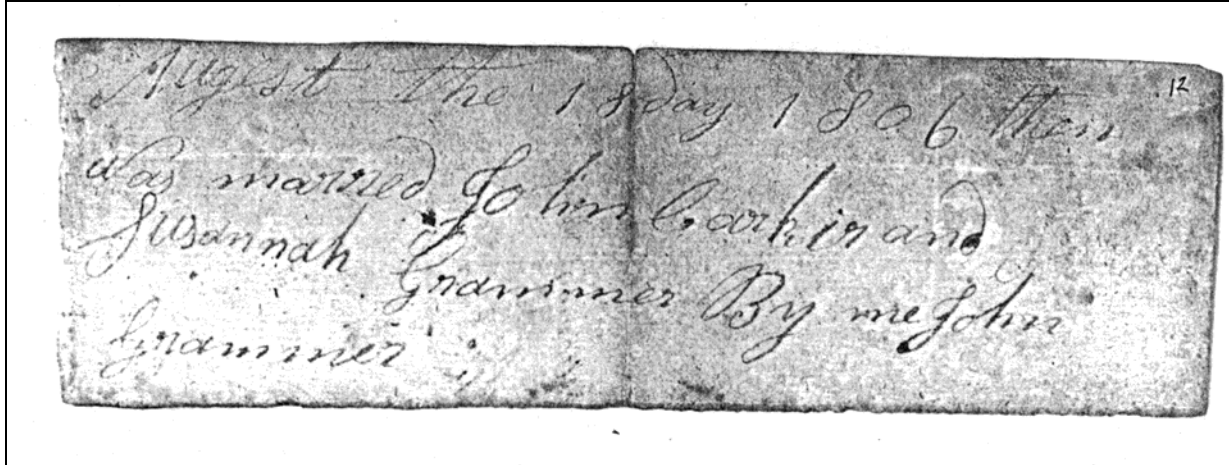 Augest the 18 day 1806 then
12
was married John and
Susannah Grammer By me John
Grammer